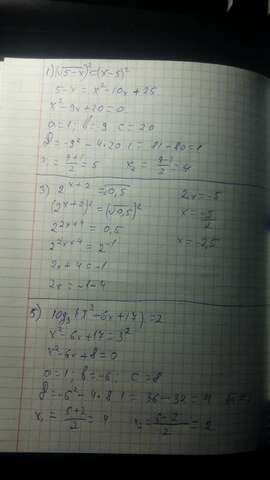 1) (√5-x)² = (x-5)²
5-x = x²-10x+25
x²-9x+20=0
a=1; b=9 c=20
D=-9²-4·20·1=81-80=1
x₁=(9+1)/2=5 x₂=(9-1)/2=4
3) 2^(x+2)=√0,5
(2^(x+2))²=(√0,5)²
2^(2x+4)=0,5
2^(2x+4)=2^(-1)
2x+4=-1
2x=-1-4
2x=-5
x=-5/2
x=-2,5
5) log₃(x²-6x+17)=2
x²-6x+17=3²
x²-6x+8=0
a=1; b=-6; c=8
D=-6²-4·8·1=36-32=4
x₁=(6+2)/2=4 x₂=(6-2)/2=2